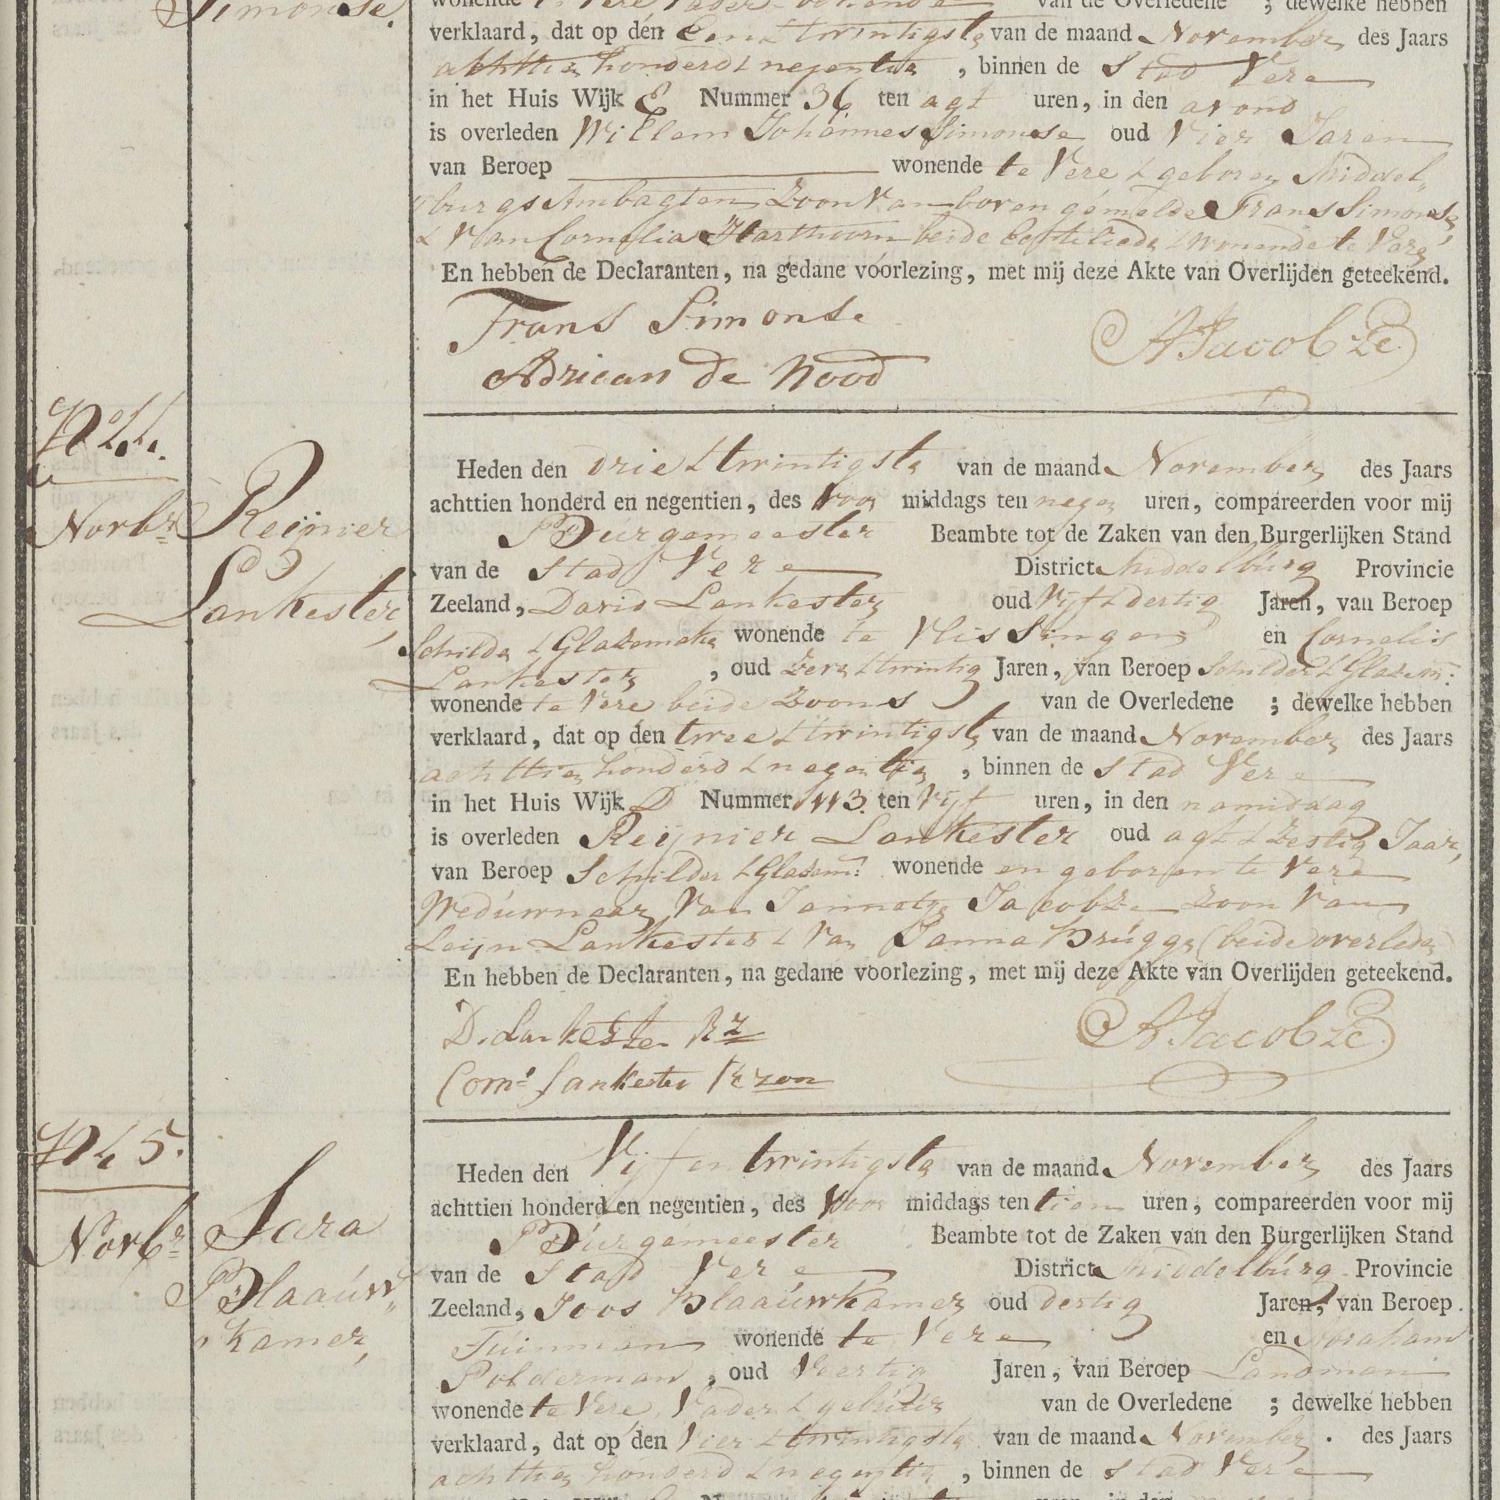 Simonse.
verklaard, dat op den Een & twintigste van de maand November des Jaars
achttien honderd & negentien, binnen de Stad Vere
in het Huis Wijk E Nummer 36 ten agt uren, in den avond
is overleden Willem Johannes Simonse oud Vier Jaren
van Beroep wonende te Vere & geboren Middel„
„burgs Ambagten Zoon van boven gemelde Frans Simonse
& Van Cornelia Harthoorn beide wonende te Vere
En hebben de Declaranten, na gedane voorlezing, met mij deze Akte van Overlijden geteekend.
Frans Simonse
AJacobze
Adriaan de Nood
No 44.
Novbr
Reijnier
Lankester,
Heden den drie & twintigste van de maand November des Jaars
achttien honderd en negentien, des Voor middags ten negen uren, compareerden voor mij
Burgemeester Beambte tot de Zaken van den Burgerlijken Stand
van de Stad Vere District Middelburg Provincie
Zeeland, David Lankester oud Vijf & dertig Jaren, van Beroep
Schilder & Glazemaker wonende te Vlissingen en Cornelis
Lankester, oud Zeven & twintig Jaren, van Beroep Schilder & Glazem:
wonende te Vere beide Zoons van de Overledene ; dewelke hebben
verklaard, dat op den twee & twintigste van de maand November des Jaars
achttien honderd & negentien, binnen de Stad Vere
in het Huis Wijk D Nummer 113. ten Vijf uren, in den namidaag
is overleden Reijnier Lankester oud agt & Zestig Jaar,
van Beroep Schilder & Glazem: wonende en geboren te Vere
Weduwnaar Van Jannetje Jacobze Zoon Van
Leijn Lankester & Van Janna Brugge (beide overleden)
En hebben de Declaranten, na gedane voorlezing, met mij deze Akte van Overlijden geteekend.
D. Lankester Rz
AJacobze
Corns Lankester Rzoon
No 45.
Novbr
Sara
Blaauw„
„kamer,
Heden den Vijf en twintigste van de maand November des Jaars
achttien honderd en negentien, des Voor middags ten tien uren, compareerden voor mij
Burgemeester Beambte tot de Zaken van den Burgerlijken Stand
van de Stad Vere District Middelburg Provincie
Zeeland, Joos Blaauwkamer oud dertig Jaren, van Beroep
Tuinman wonende te Vere en Abraham
Polderman, oud Veertig Jaren, van Beroep Landman
wonende te Vere, Vader & gebuur van de Overledene ; dewelke hebben
verklaard, dat op den Vier & twintigste van de maand November. des Jaars
achttien honderd & negentien, binnen de Stad Vere